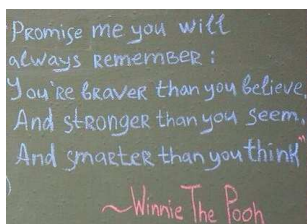 Promise me you will
always remember:
You're braver than you believe,
And stronger than you seem,
And smarter than you think"
~Winnie The Pooh